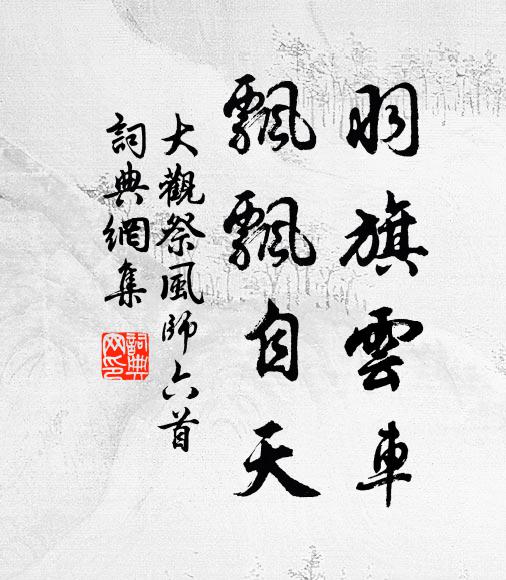 羽旗雲車
飄飄自天
大觀祭風師六首
詞典網集
詞典
网印